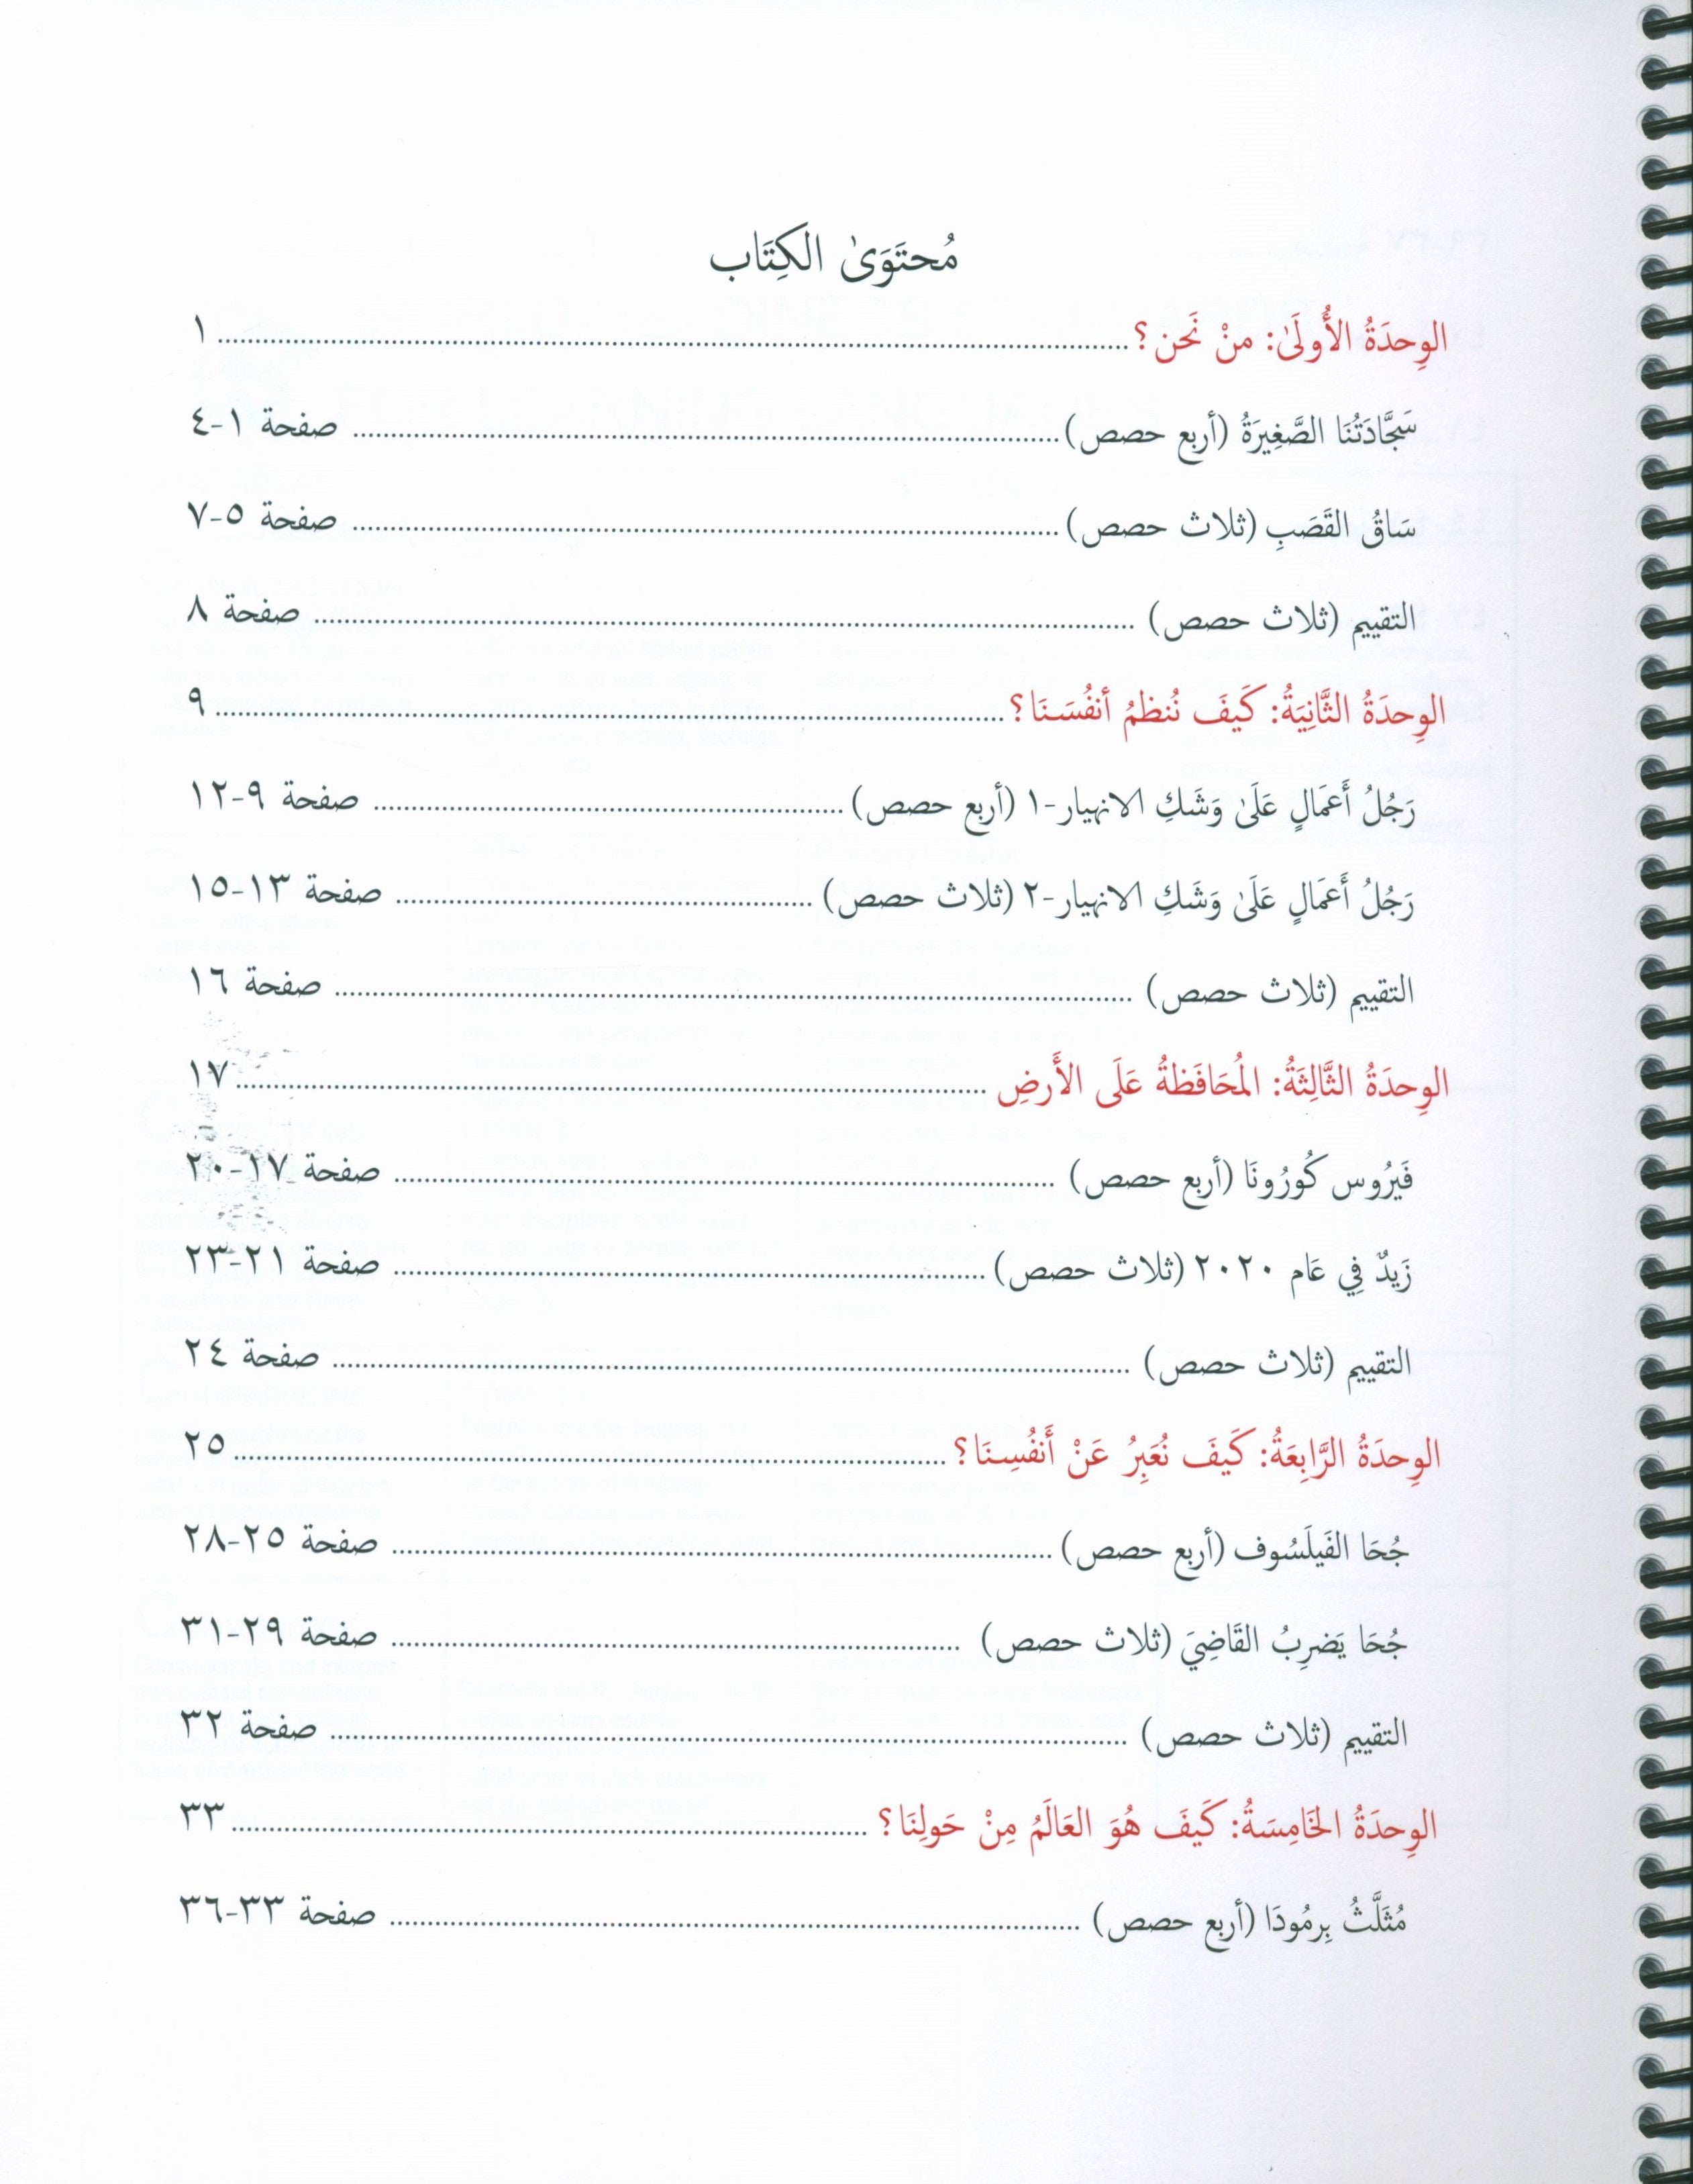 مُحتَوَىٰ الكِتَاب
الوِحدَةُ الأُولَىٰ: منْ نَحن؟ ........ ١
سَجَّادَتُنَا الصَّغِيرَةُ (أربع حصص) ........ صفحة ١-٤
سَاقُ القَصَبِ (ثلاث حصص) ........ صفحة ٥-٧
التقييم (ثلاث حصص) ........ صفحة ٨
الوِحدَةُ الثَّانِيَةُ: كَيفَ نُنظمُ أنفُسَنَا؟ ........ ٩
رَجُلُ أَعمَالٍ عَلَىٰ وَشَكِ الانهيار-١ (أربع حصص) ........ صفحة ٩-١٢
رَجُلُ أَعمَالٍ عَلَىٰ وَشَكِ الانهيار-٢ (ثلاث حصص) ........ صفحة ١٣-١٥
التقييم (ثلاث حصص) ........ صفحة ١٦
الوِحدَةُ الثَّالِثَةُ: المُحَافَظةُ عَلَى الأَرضِ ........ ١٧
فَيرُوس كُورُونَا (أربع حصص) ........ صفحة ١٧-٢٠
زَيدٌ فِي عَام ٢٠٢٠ (ثلاث حصص) ........ صفحة ٢١-٢٣
التقييم (ثلاث حصص) ........ صفحة ٢٤
الوِحدَةُ الرَّابِعَةُ: كَيفَ نُعَبِرُ عَنْ أَنفُسِنَا؟ ........ ٢٥
جُحَا الفَيلَسُوف (أربع حصص) ........ صفحة ٢٥-٢٨
جُحَا يَضرِبُ القَاضِيَ (ثلاث حصص) ........ صفحة ٢٩-٣١
التقييم (ثلاث حصص) ........ صفحة ٣٢
الوِحدَةُ الخَامِسَةُ: كَيفَ هُوَ العَالَمُ مِنْ حَولِنَا؟ ........ ٣٣
مُثَلَّثُ بِرمُودَا (أربع حصص) ........ صفحة ٣٣-٣٦